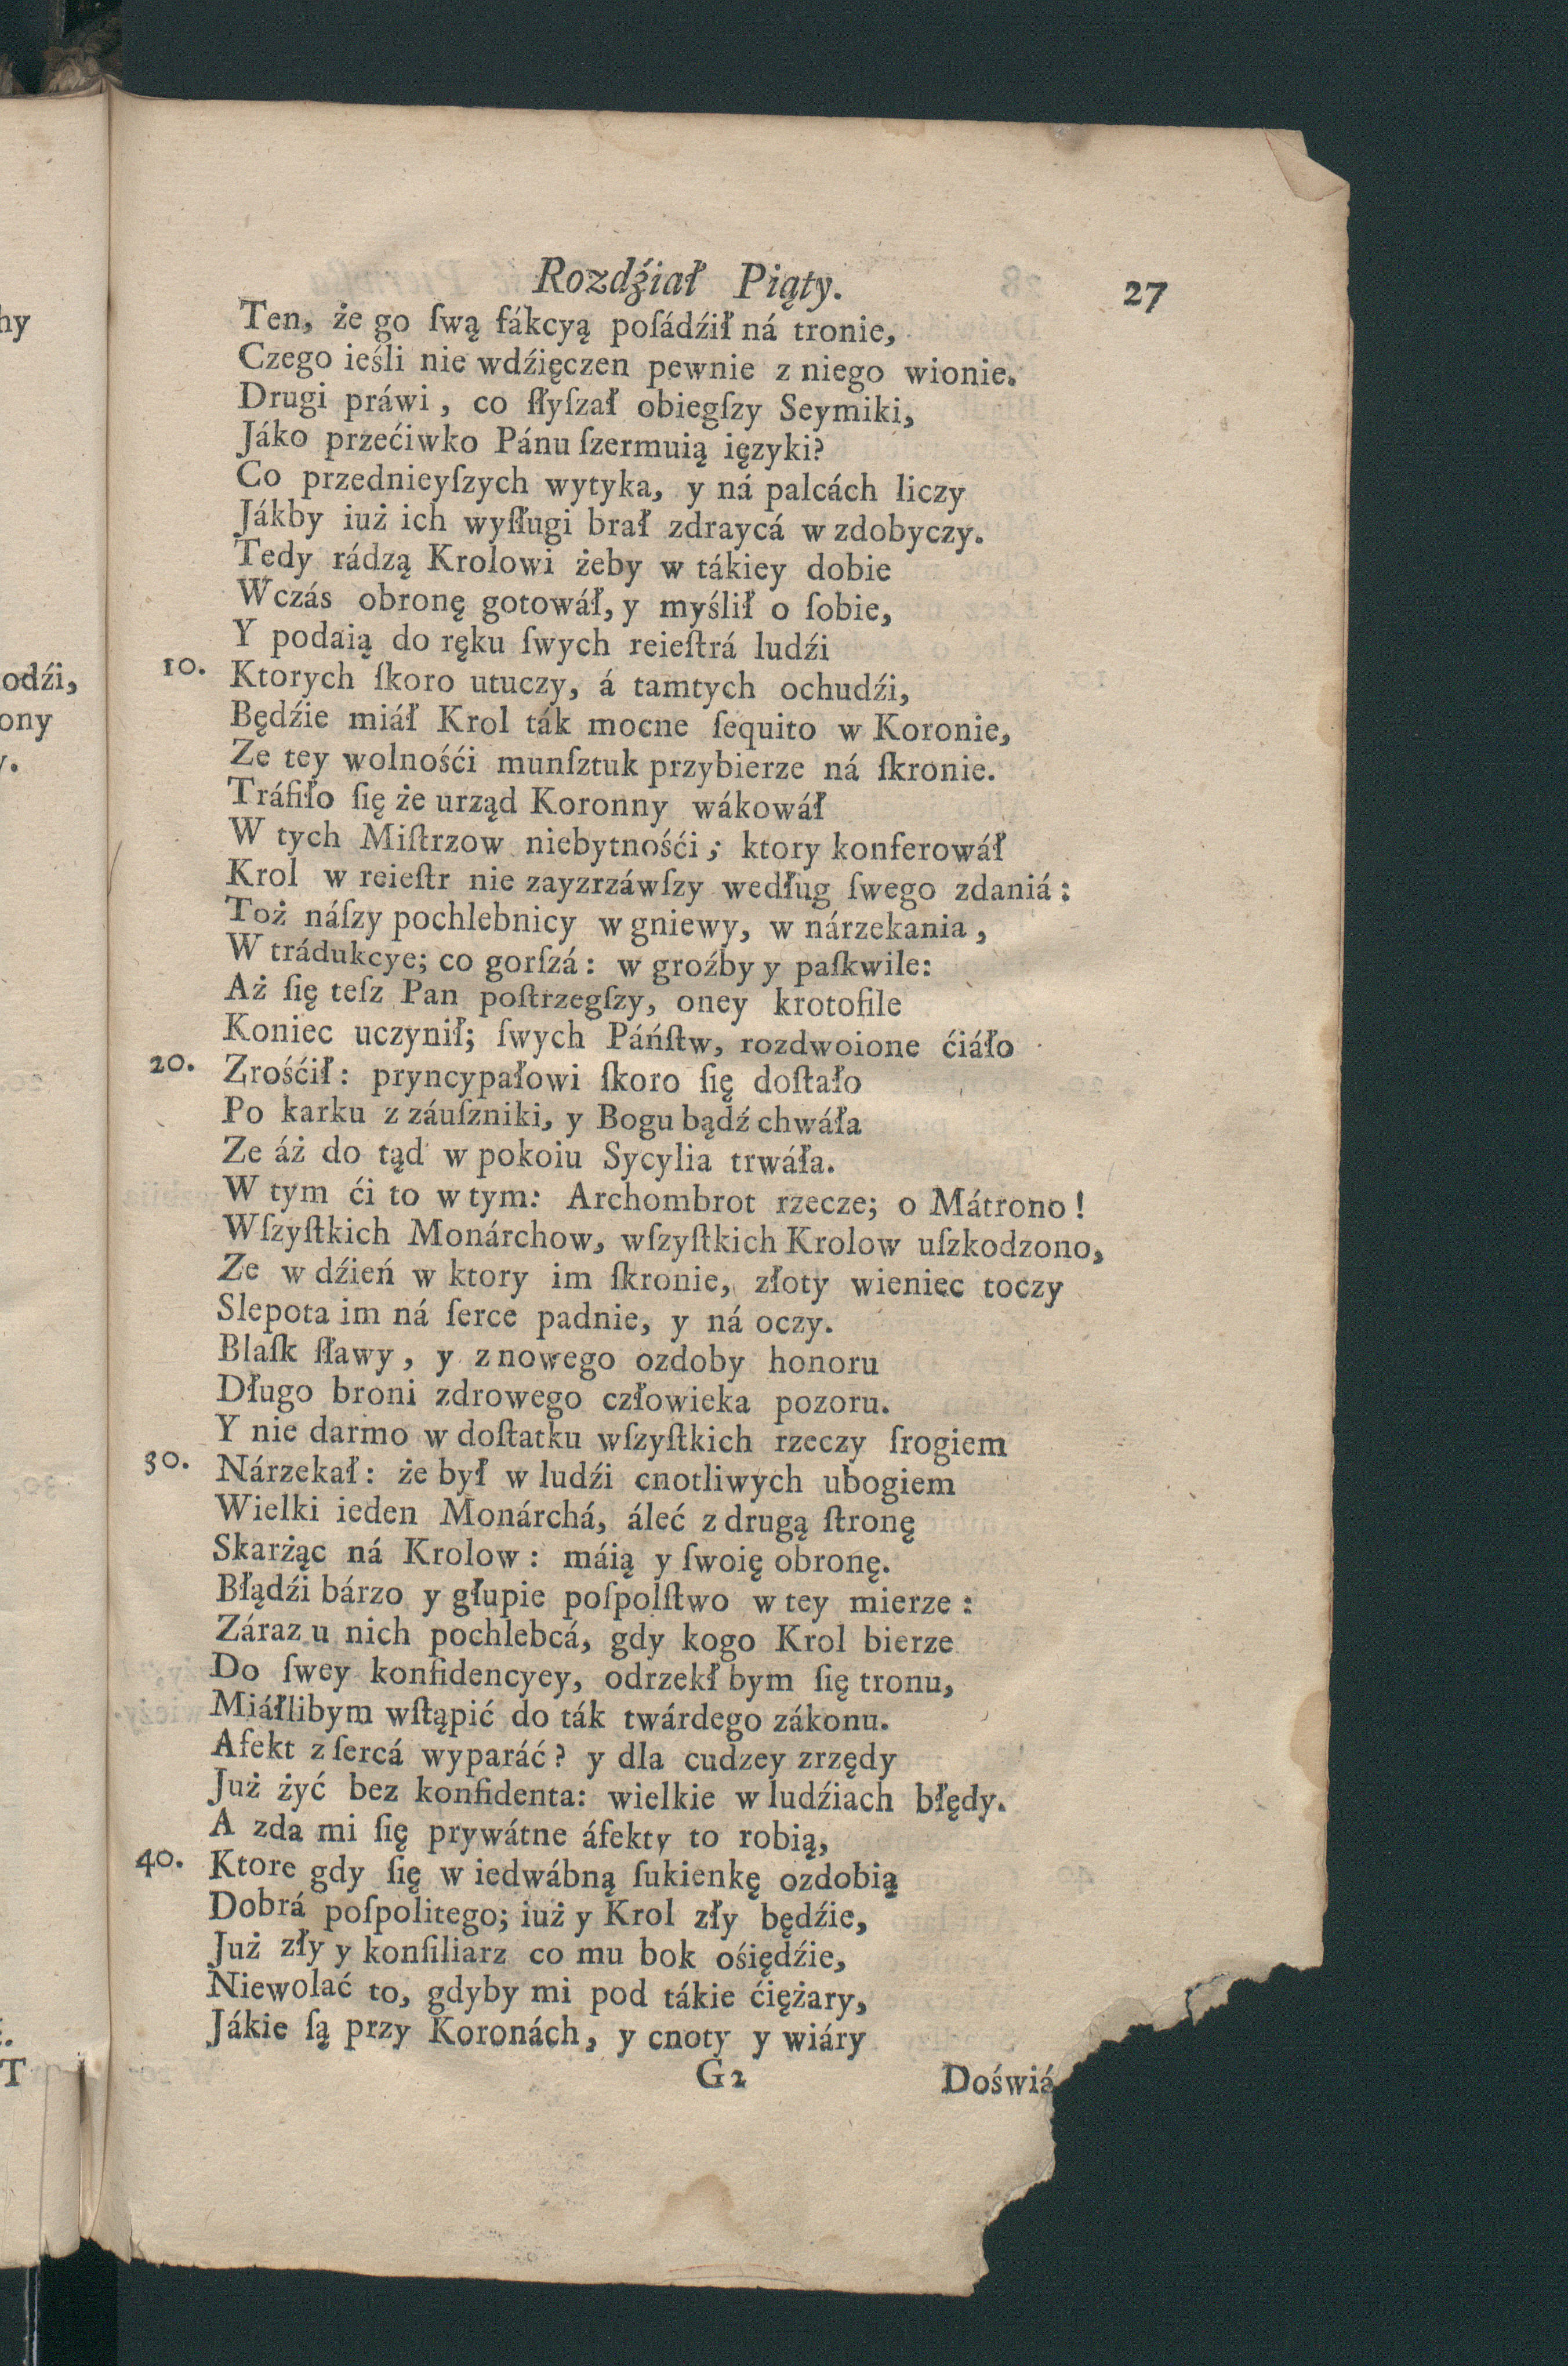 Rozdźiał Piąty. 27
Ten, że go ſwą fákcyą poſádźił ná tronie,
Czego ieśli nie wdźięczen pewnie z niego wionie.
Drugi práwi, co ſłyſzał obiegſzy Seymiki,
Jáko przećiwko Pánu ſzermuią ięzyki?
Co przednieyſzych wytyka, y ná palcách liczy
Jákby iuż ich wyſługi brał zdraycá w zdobyczy.
Tedy rádzą Krolowi żeby w tákiey dobie
Wczás obronę gotowáł, y myślił o ſobie,
Y podaią do ręku ſwych reieſtrá ludźi
10. Ktorych ſkoro utuczy, á tamtych ochudźi,
Będźie miáł Krol ták mocne ſequito w Koronie,
Ze tey wolnośći munſztuk przybierze ná ſkronie.
Tráfiło ſię że urząd Koronny wákowáł
W tych Miſtrzow niebytnośći; ktory konferowáł
Krol w reieſtr nie zayzrzáwſzy według ſwego zdaniá:
Toż náſzy pochlebnicy w gniewy, w nárzekania,
W trádukcye; co gorſzá: w groźby y paſkwile:
Aż ſię teſz Pan poſtrzegſzy, oney krotofile
Koniec uczynił; ſwych Páńſtw, rozdwoione ćiáło
20. Zrośćił: pryncypałowi ſkoro ſię doſtało
Po karku z záuſzniki, y Bogu bądź chwáła
Ze áż do tąd w pokoiu Sycylia trwáła.
W tym ći to w tym: Archombrot rzecze; o Mátrono!
Wſzyſtkich Monárchow, wſzyſtkich Krolow uſzkodzono,
Ze w dźień w ktory im ſkronie, złoty wieniec toczy
Slepota im ná ſerce padnie, y ná oczy.
Blaſk ſławy, y z nowego ozdoby honoru
Długo broni zdrowego człowieka pozoru.
Y nie darmo w doſtatku wſzyſtkich rzeczy ſrogiem
30. Nárzekał: że był w ludźi cnotliwych ubogiem
Wielki ieden Monárchá, áleć z drugą ſtronę
Skarżąc ná Krolow: máią y ſwoię obronę.
Błądźi bárzo y głupie poſpolſtwo w tey mierze:
Záraz u nich pochlebcá, gdy kogo Krol bierze
Do ſwey konfidencyey, odrzekł bym ſię tronu,
Miáłlibym wſtąpić do ták twárdego zákonu.
Afekt z ſercá wyparáć? y dla cudzey zrzędy
Już żyć bez konfidenta: wielkie w ludźiach błędy.
A zda mi ſię prywátne áfekty to robią,
40. Ktore gdy ſię w iedwábną ſukienkę ozdobią
Dobrá poſpolitego; iuż y Krol zły będźie,
Już zły y konſiliarz co mu bok ośiędźie,
Niewolać to, gdyby mi pod tákie ćiężary,
Jákie ſą przy Koronách, y cnoty y wiáry
G2 Doświá
hy
odźi,
ony
y.
T